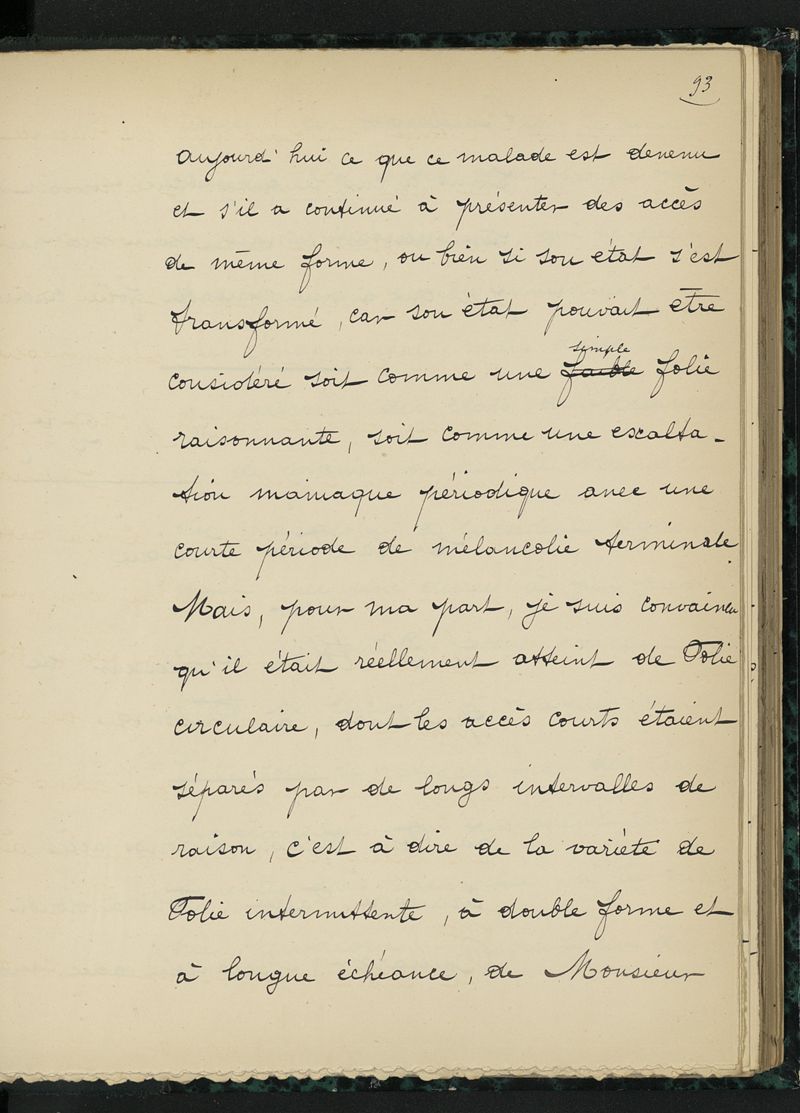 93
aujourd'hui ce que ce malade est devenu
et s'il a continué à présenter des accès
de même forme, ou bien si son état s'est
transformé, car son état pouvait être
simple
considéré soit comme une faible folie
raisonnante, soit comme une escalta-
tion maniaque périodique avec une
courte période de mélancolie terminale.
Mais, pour ma part, je suis convaincu
qu'il était réellement atteint de Folie
circulaire, dont les accès courts étaient
séparés par de longs intervalles de
raison, c'est à dire de la variété de
Folie intermittente, à double forme et
à longue échéance, de Monsieur